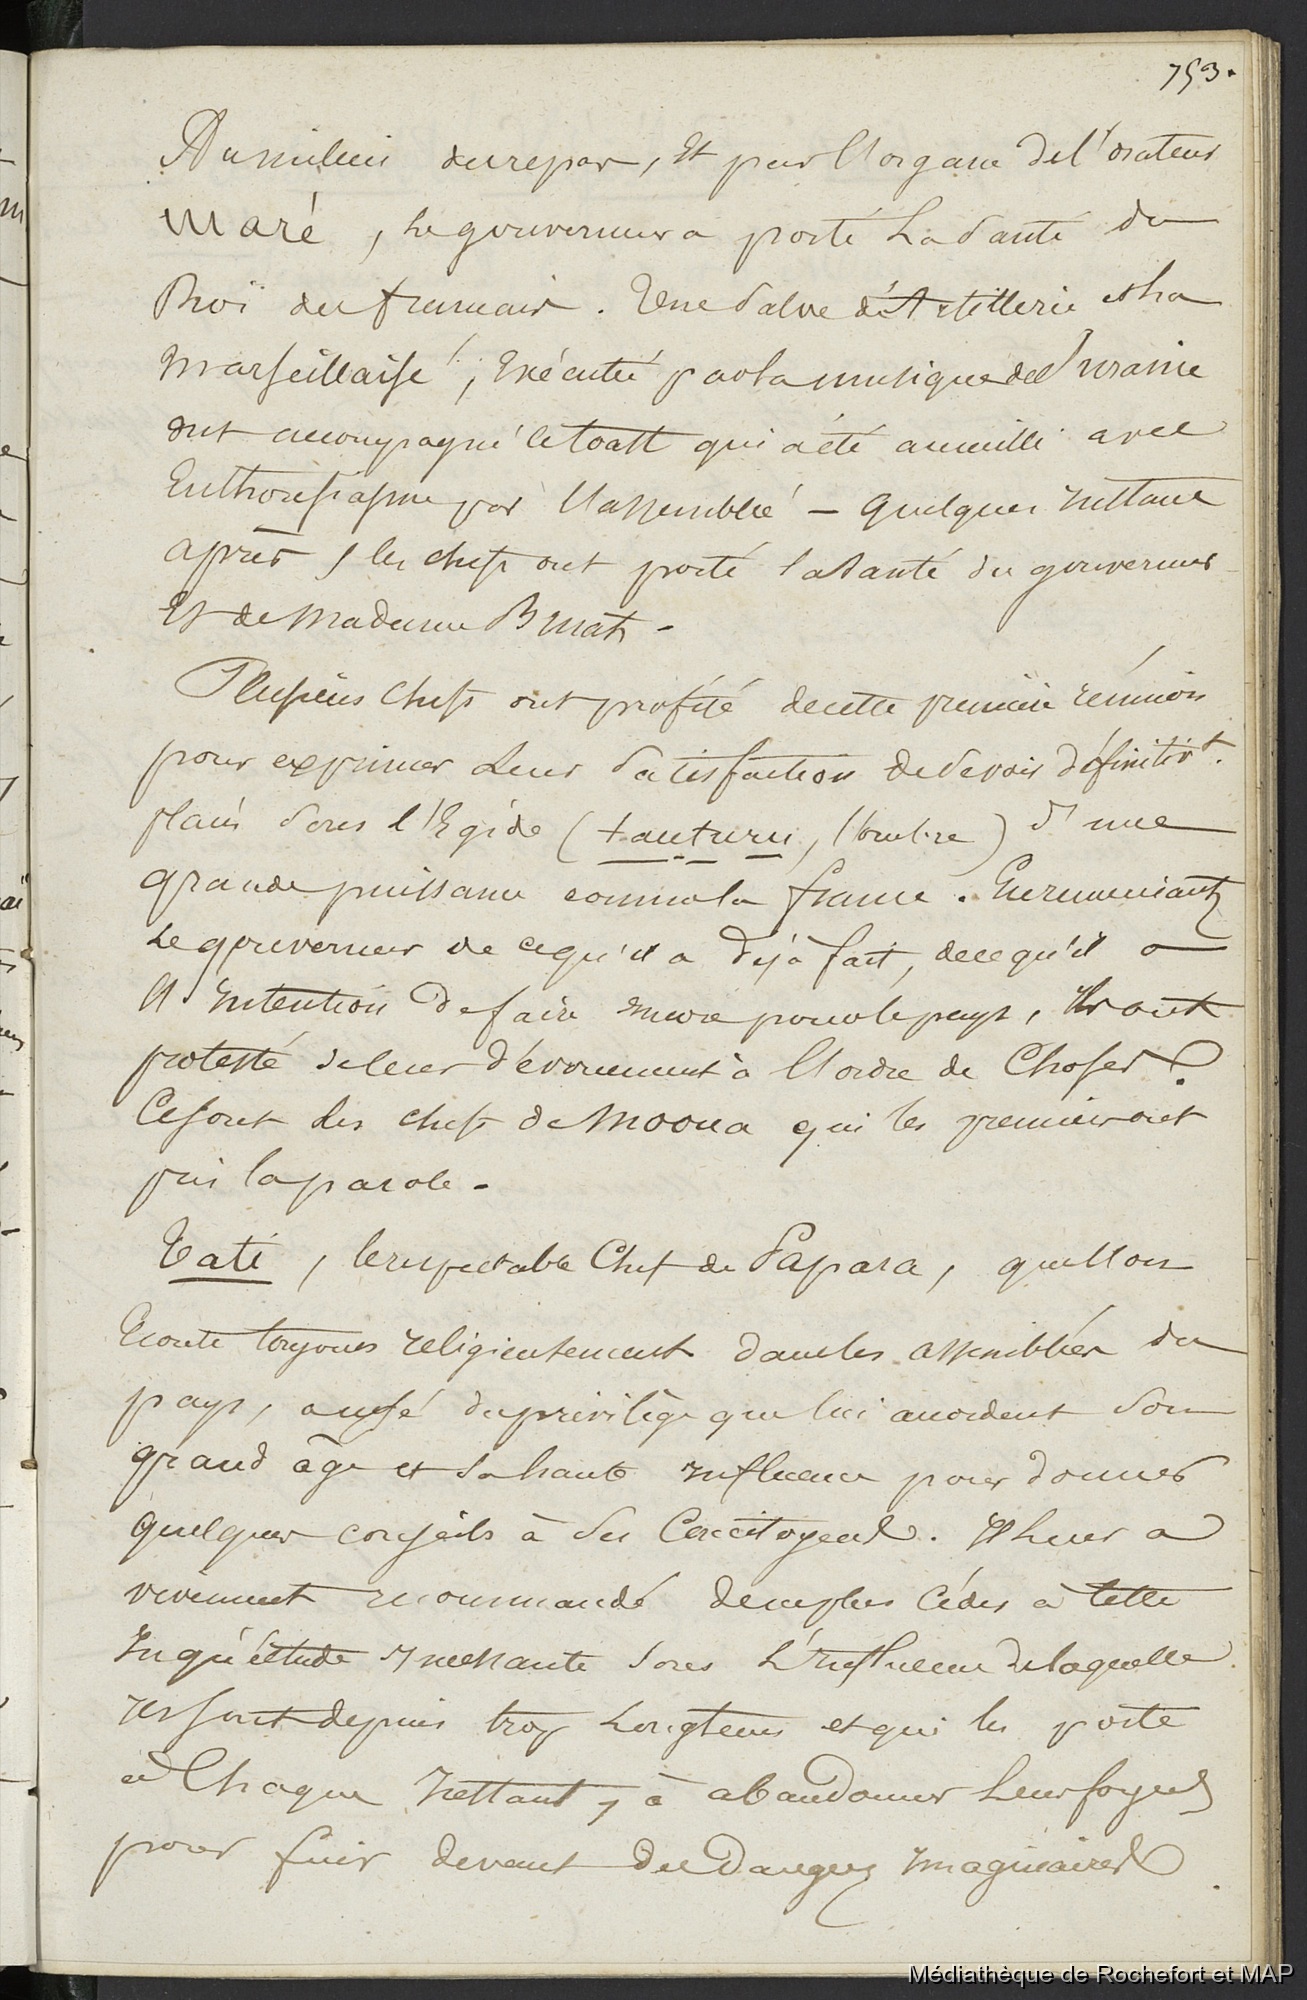 753.
Au milieu du repas, et par l'organe de l'orateur
Maré, le gouverneur a porté la Santé du
Roi des français. Une Salve d'Artillerie et la
Marseillaise, Exécuté par la musique de l'Uranie
ont accompagné le toast qui a été accueilli avec
Enthousiasme par l'assemblée - quelques Instans
après, les chefs ont porté la Santé du gouverneur
Et de Madame Bruat -
Plusieurs Chefs ont profité de cette première réunion
pour exprimer leur Satisfaction de se voir définitivt.
placés Sous l'Egide (tauturu, l'ombre) d'une
grande puissance comme la france. En remerciant
le gouverneur de ce qu'il a déjà fait, de ce qu'il a
l'Intention de faire encore pour le pays, Ils ont
protesté de leur dévouement à l'ordre de Choses.
Ce sont les chefs de Moorea qui les premiers ont
pris la parole -
Tati, le respectable Chef de Papara, que l'on
Ecoute toujours religieusement dans les assemblées du
pays, a usé du privilège que lui accordent Son
grand âge et Sa haute Influence pour donner
quelques conseils à Ses Concitoyens. Il leur a
vivement recommandé de ne plus céder à cette
Inquiétude Incessante Sous l'Influence de laquelle
Ils sont depuis trop longtems et qui les porte
à Chaque Instant, à abandonner leurs foyers
pour fuir devant des Dangers Imaginaires
Médiathèque de Rochefort et MAP